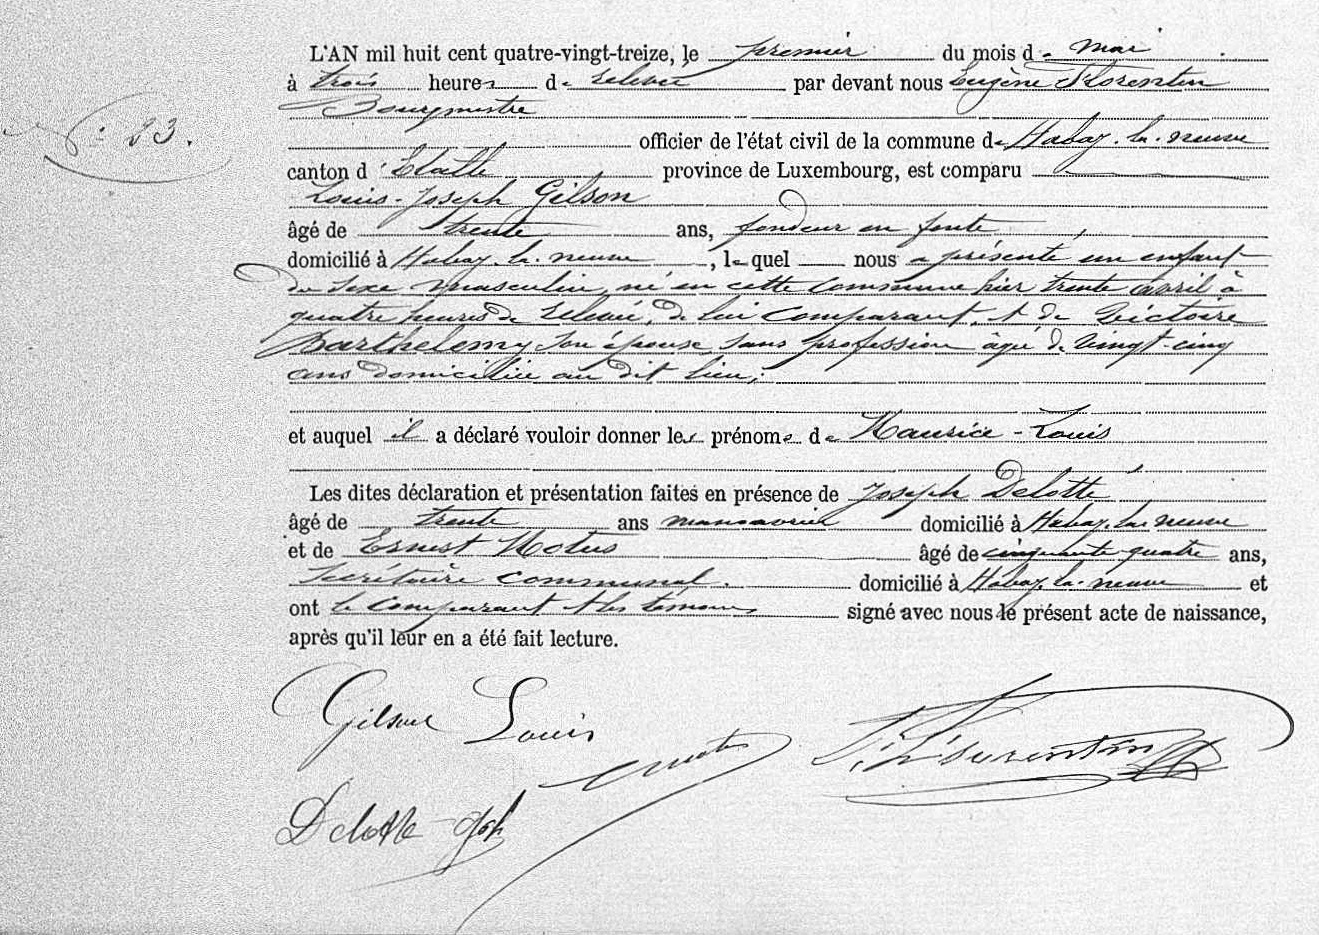 N° 23.
L'AN mil huit cent quatre-vingt-treize, le premier du mois de mai
à trois heures de relevée par devant nous Eugène Florentin
Bourgmestre
officier de l'état civil de la commune de Habay-la-neuve
canton d'Etalle province de Luxembourg, est comparu
Louis-Joseph Gilson
âgé de trente ans, fondeur en fonte
domicilié à Habay-la-neuve, lequel nous a présenté un enfant
du sexe masculin, né en cette commune hier trente avril à
quatre heures de relevée, de lui comparant, et de Victoire
Barthelemy son épouse, sans profession âgée de vingt-cinq
ans domiciliée au dit lieu;
et auquel il a déclaré vouloir donner les prénoms de Maurice-Louis
Les dites déclaration et présentation faites en présence de Joseph Delotte
âgé de trente ans manoeuvrier domicilié à Habay-la-neuve
et de Ernest âgé de cinquante-quatre ans,
Secrétaire communal. domicilié à Habay-la-neuve et
ont le comparant et les témoins signé avec nous le présent acte de naissance,
après qu'il leur en a été fait lecture.
Gilson Louis
E. Florentin
Delotte Jph